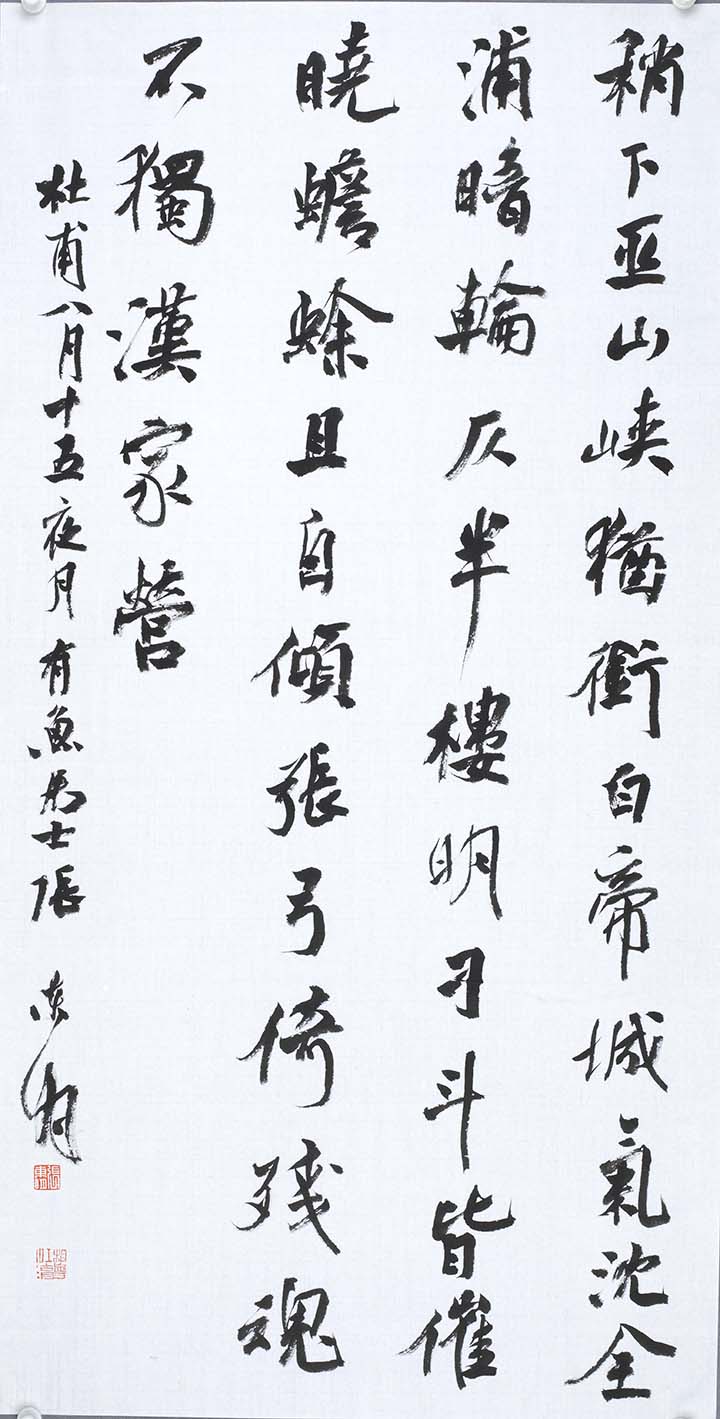 稍下巫山峽猶銜白帝城氣沈全
浦暗輪仄半樓明刁斗皆催
曉蟾蜍且自傾張弓倚残魂
不獨漢家營
杜甫八月十五夜月 有魚居士張